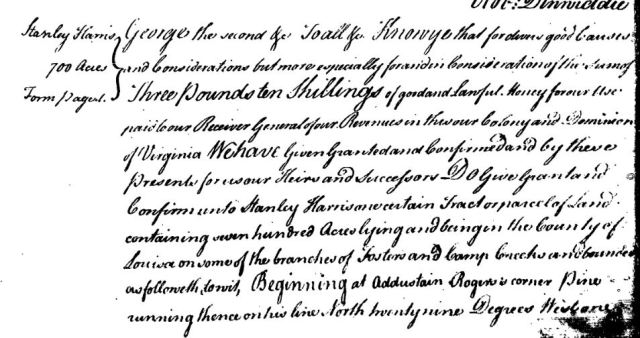 Robt: Dinwiddie
Stanley Harris
700 Acres
Form paged.
George the second &c To all &c Know ye that for divers good Causes
and Considerations but more especially for and in Consideration of the Sum of
Three Pounds ten Shillings of good and Lawful Money for our Use
paid to our Receiver General of our Revenues in this our Colony and Dominion
of Virginia We have Given Granted and Confirmed and by these
Presents for us our Heirs and Successors Do Give Grant and
Confirm unto Stanley Harris one certain Tract or parcel of Land
containing seven hundred Acres lying and being in the County of
Louisa on some of the branches of Fosters and Camp Creeks and bounded
as followeth to wit, Beginning at Addustain Rogers's corner Pine
running thence on his line North twenty nine Degrees West one